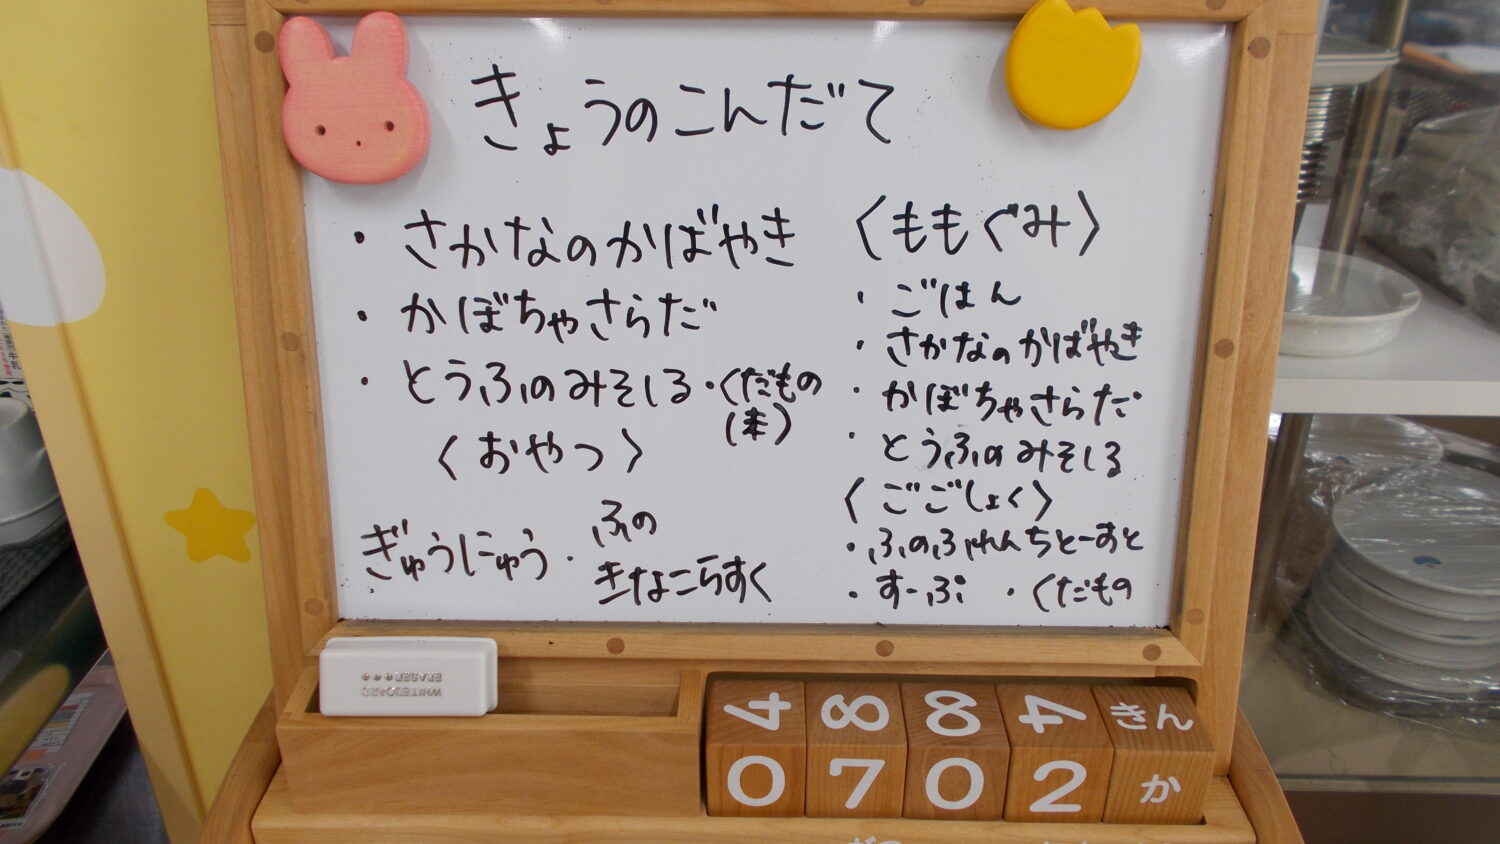 きょうのこんだて
・さかなのかばやき
・かぼちゃさらだ
・とうふのみそしる・くだもの
〈おやつ〉
ぎゅうにゅう・ふの
きなこらすく
〈ももぐみ〉
・ごはん
・さかなのかばやき
・かぼちゃさらだ
・とうふのみそしる
〈ごごしょく〉
・ふのふれんちとーすと
・すーぷ ・くだもの
WHITEBOARD
ERASER
4 8 8 4 きん
0 7 0 2 か